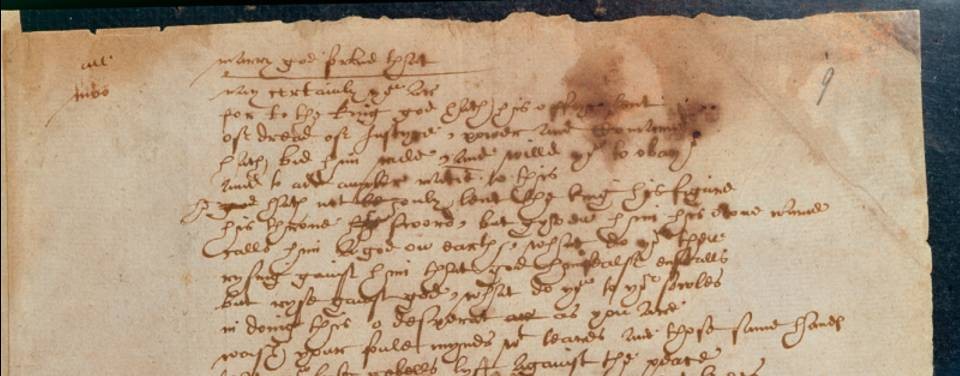 all marry god forbid that 9
moo nay certainly yoᵘ ar
for to the king god hath his offyc lent
of dread of Iustyce, power and Comaund
hath bid him rule, and willd yoᵘ to obay
and to add ampler matie to this
he god hath not le only lent the king his figure
his throne his sword, but gyven him his owne name
calls him a god on earth, what do yoᵘ then
rysing gainst him that god himsealf enstalls
but ryse gainst god, what do yoᵘ to yoʳ sowles
in doing this o desperat ar as you are
wash your foule mynds wᵗ teares and those same handes
that yoᵘ lyke rebells lyft against the peace